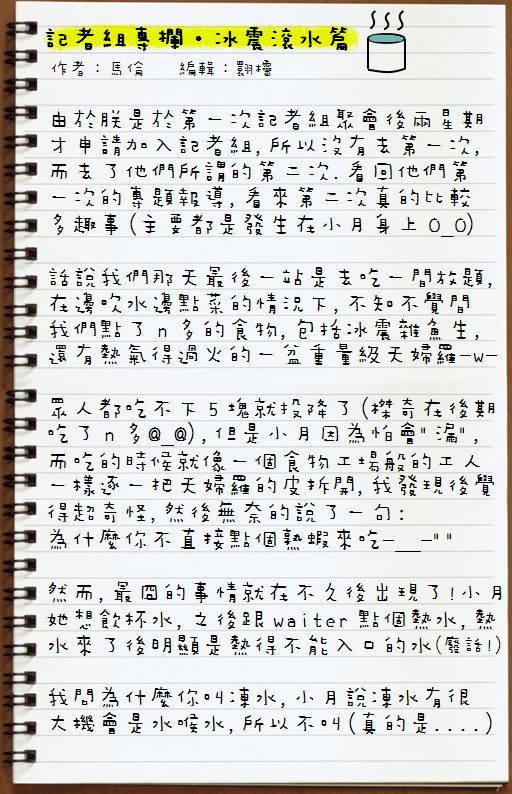 記者組專欄·冰震滾水篇
作者：馬倫 編輯：翾檯
由於朕是於第一次記者組聚會後兩星期
才申請加入記者組,所以沒有去第一次,
而去了他們所謂的第二次.看回他們第
一次的專題報導,看來第二次真的比較
多趣事(主要都是發生在小月身上O_O)
話說我們那天最後一站是去吃一間放題,
在邊吹水邊點菜的情況下,不知不覺間
我們點了n多的食物,包括冰震雜魚生,
還有熱氣得過火的一盆重量級天婦羅-w-
眾人都吃不下5塊就投降了(傑奇在後期
吃了n多@_@),但是小月因為怕會"漏",
而吃的時候就像一個食物工場般的工人
一樣逐一把天婦羅的皮拆開,我發現後覺
得超奇怪,然後無奈的說了一句:
為什麼你不直接點個熟蝦來吃-__-""
然而,最囧的事情就在不久後出現了!小月
她想飲杯水,之後跟waiter點個熱水,熱
水來了後明顯是熱得不能入口的水(廢話!)
我問為什麼你叫凍水,小月說凍水有很
大機會是水喉水,所以不叫(真的是....)